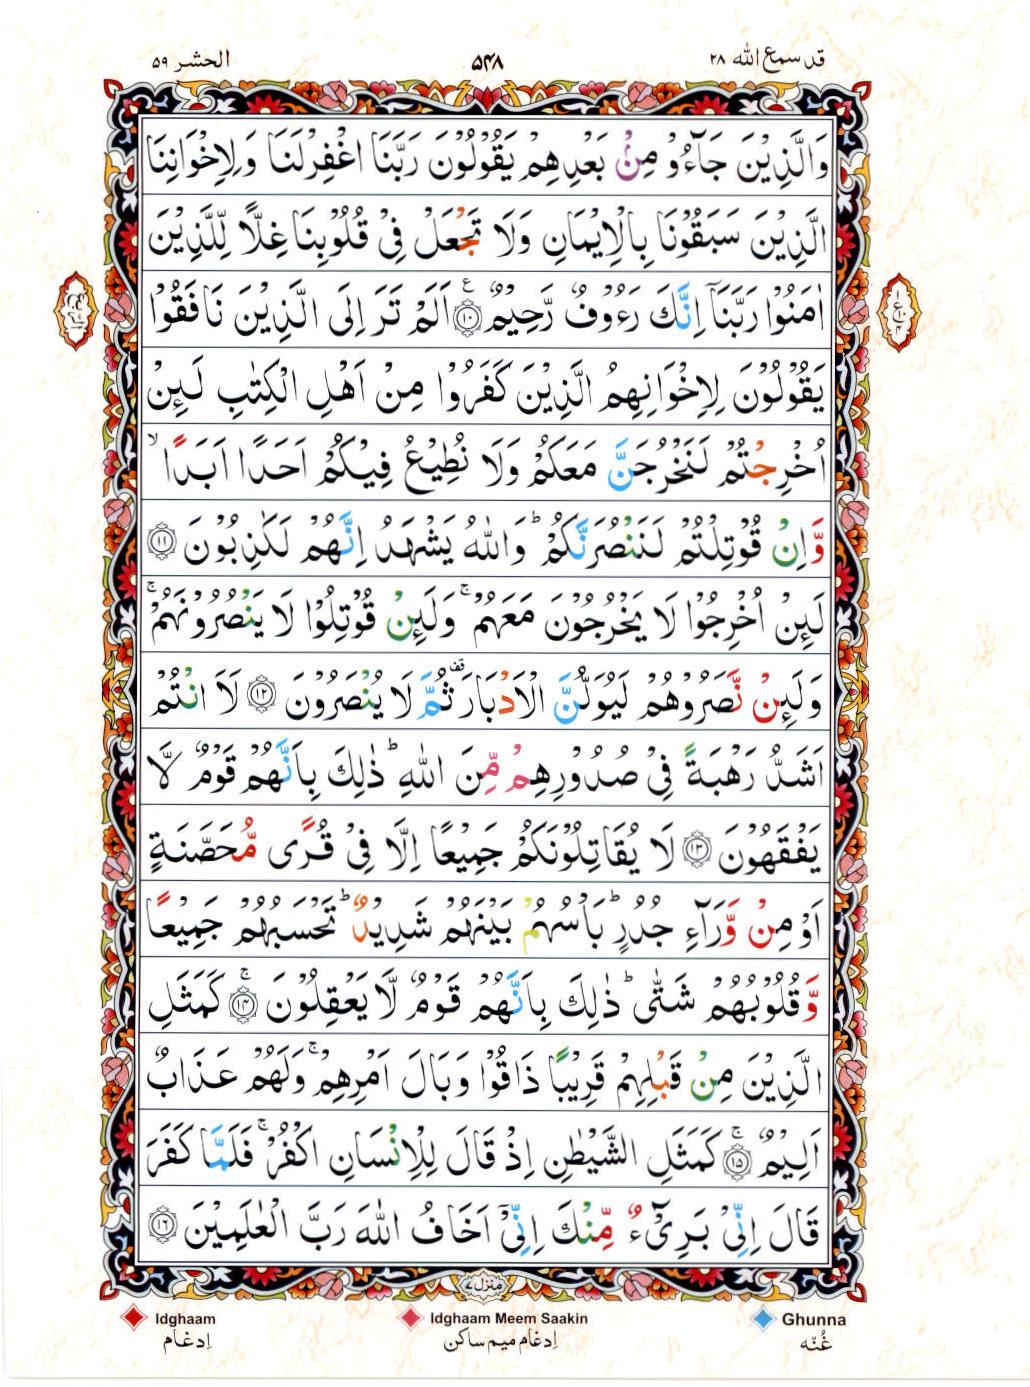 الحشر ۵۹ ۵۴۸ قد سمع الله ۲۸
وَالَّذِيْنَ جَآءُوْ مِنْۢ بَعْدِهِمْ يَقُوْلُوْنَ رَبَّنَا اغْفِرْلَنَا وَلِاِخْوَانِنَا
الَّذِيْنَ سَبَقُوْنَا بِالْاِيْمَانِ وَلَا تَجْعَلْ فِيْ قُلُوْبِنَا غِلًّا لِّلَّذِيْنَ
اٰمَنُوْا رَبَّنَآ اِنَّكَ رَءُوْفٌ رَّحِيْمٌ ۝۱۰ اَلَمْ تَرَ اِلَى الَّذِيْنَ نَافَقُوْا
يَقُوْلُوْنَ لِاِخْوَانِهِمُ الَّذِيْنَ كَفَرُوْا مِنْ اَهْلِ الْكِتٰبِ لَئِنْ
اُخْرِجْتُمْ لَنَخْرُجَنَّ مَعَكُمْ وَلَا نُطِيْعُ فِيْكُمْ اَحَدًا اَبَدًا ۙ
وَّاِنْ قُوْتِلْتُمْ لَنَنْصُرَنَّكُمْ ؕ وَاللّٰهُ يَشْهَدُ اِنَّهُمْ لَكٰذِبُوْنَ ۝۱۱
لَئِنْ اُخْرِجُوْا لَا يَخْرُجُوْنَ مَعَهُمْ ۚ وَلَئِنْ قُوْتِلُوْا لَا يَنْصُرُوْنَهُمْ ۚ
وَلَئِنْ نَّصَرُوْهُمْ لَيُوَلُّنَّ الْاَدْبَارَ قف ثُمَّ لَا يُنْصَرُوْنَ ۝۱۲ لَا اَنْتُمْ
اَشَدُّ رَهْبَةً فِيْ صُدُوْرِهِمْ مِّنَ اللّٰهِ ؕ ذٰلِكَ بِاَنَّهُمْ قَوْمٌ لَّا
يَفْقَهُوْنَ ۝۱۳ لَا يُقَاتِلُوْنَكُمْ جَمِيْعًا اِلَّا فِيْ قُرًى مُّحَصَّنَةٍ
اَوْ مِنْ وَّرَآءِ جُدُرٍ ؕ بَاْسُهُمْ بَيْنَهُمْ شَدِيْدٌ ؕ تَحْسَبُهُمْ جَمِيْعًا
وَّقُلُوْبُهُمْ شَتّٰى ؕ ذٰلِكَ بِاَنَّهُمْ قَوْمٌ لَّا يَعْقِلُوْنَ ۚ ۝۱۴ كَمَثَلِ
الَّذِيْنَ مِنْ قَبْلِهِمْ قَرِيْبًا ذَاقُوْا وَبَالَ اَمْرِهِمْ ۚ وَلَهُمْ عَذَابٌ
اَلِيْمٌ ۚ ۝۱۵ كَمَثَلِ الشَّيْطٰنِ اِذْ قَالَ لِلْاِنْسَانِ اكْفُرْ ۚ فَلَمَّا كَفَرَ
قَالَ اِنِّيْ بَرِيْٓءٌ مِّنْكَ اِنِّيْٓ اَخَافُ اللّٰهَ رَبَّ الْعٰلَمِيْنَ ۝۱۶
منزل ۷
Idghaam Idghaam Meem Saakin Ghunna
اِدغام اِدغام میم ساکن غُنّه